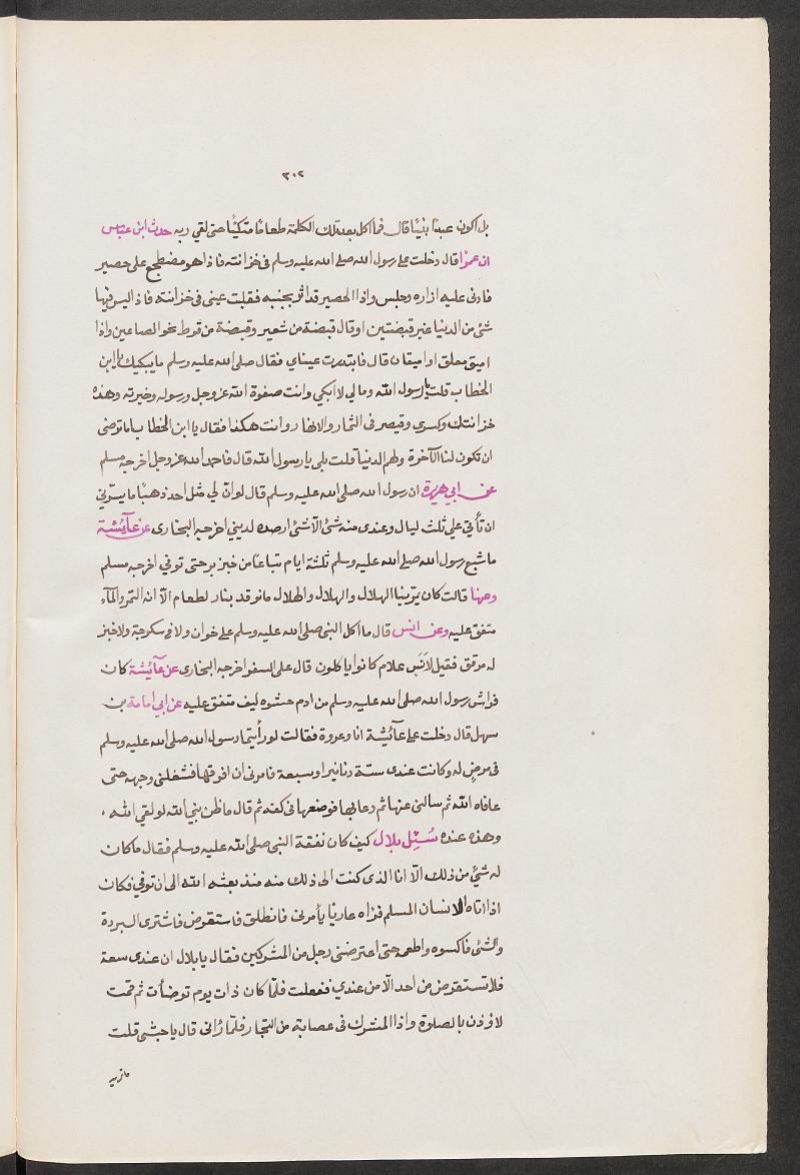 ٣٠٢
بل اكون عبدًا نبيًا قال فما اكل بعد تلك الكلمة طعامًا متكيًا حتى لقي ربه حدث ابن عباس
ان عمر قال دخلت على رسول الله صلى الله عليه وسلم فى خزانته فاذا هو مضطجع على حصير
فادنى عليه ازاره وجلس واذا الحصير قد اثر بجنبه فقلبت عينى فى خزانته فاذا ليس فيها
شئ من الدنيا غير قبضتين او قال قبضة من شعير وقبضة من قرط نحو الصاعين واذا
افيق معلق او افيقان قال فابتدرت عيناي فقال صلى الله عليه وسلم ما يبكيك يا ابن
الخطاب قلت يا رسول الله ومالي لا ابكي وانت صفوة الله عز وجل ورسوله وخيرته وهذه
خزانتك وكسرى وقيصر فى الثمار والانهار وانت هكذا فقال يا ابن الخطاب اما ترضى
ان تكون لنا الآخرة ولهم الدنيا قلت بلى يا رسول الله قال فاحمد الله عز وجل اخرجه مسلم
عن ابي هريرة ان رسول الله صلى الله عليه وسلم قال لو انّ لي مثل احد ذهبًا ما يسرّني
ان تأتي علي ثلث ليال وعندى منه شئ الّا شئ ارصده لديني اخرجه البخارى عن عآئشة
ما شبع رسول الله صلى الله عليه وسلم ثلثة ايام تباعًا من خبز بر حتى توفي اخرجه مسلم
وعنها قالت كان يمر بنا الهلال والهلال والهلال ما نوقد بنار لطعام الّا انه التمر والمآء
متفق عليه وعن انس قال ما اكل النبى صلى الله عليه وسلم على خوان ولا فى سكرجة ولا خبز
له مرقق فقيل لأنس علام كانوا ياكلون قال على السفر اخرجه البخارى عن عآئشة كان
فراش رسول الله صلى الله عليه وسلم من ادم حشوه ليف متفق عليه عن ابي امامة بن
سهل قال دخلت على عآئشة انا وعروة فقالت لو رأيتما رسول الله صلى الله عليه وسلم
فى مرض له وكانت عندى ستة دنانير او سبعة فامرنى ان افرقها فشغلنى وجعه حتى
عافاه الله ثم سالنى عنها ثم دعا بها فوضعها فى كفه ثم قال ما ظن نبي الله لو لقي الله
وهذه عنده سُئِل بلال كيف كان نفقة النبى صلى الله عليه وسلم فقال ما كان
له شئ من ذلك الّا انا الذى كنت الى ذلك منه منذ بعثه الله الى ان توفي فكان
اذا اتاه الانسان المسلم فراه عاريًا يأمرنى فانطلق فاستقرض فاشترى البردة
والشئ فاكسوه واطعمه حتى اعترضنى رجل من المشركين فقال يا بلال ان عندى سعة
فلا تستقرض من احد الّا من عندي ففعلت فلمّا كان ذات يوم توضأت ثم قمت
لاؤذن بالصلوة واذا المشرك فى عصابة من التجار فلمّا رآنى قال يا حبشى قلت